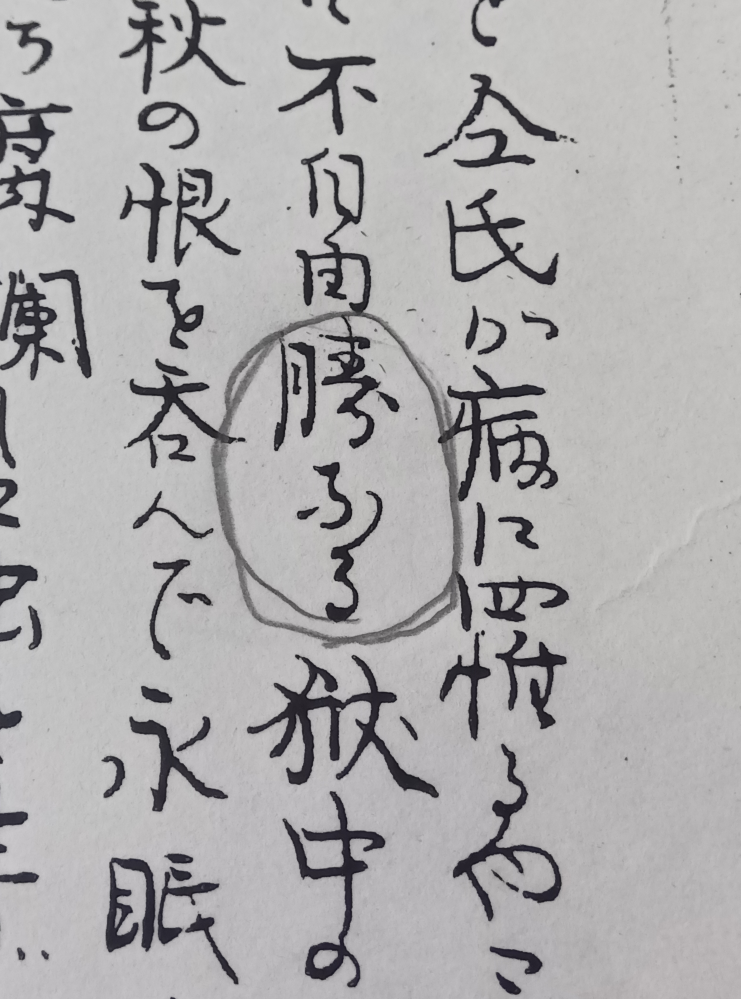 仝氏が病に罹るやこ
不自由勝なる獄中の
秋の恨を呑んで永眠
ち腐爛し